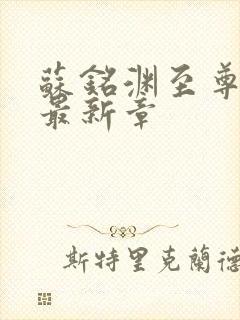 蘇銘淵至尊
最新章
斯特里克蘭德